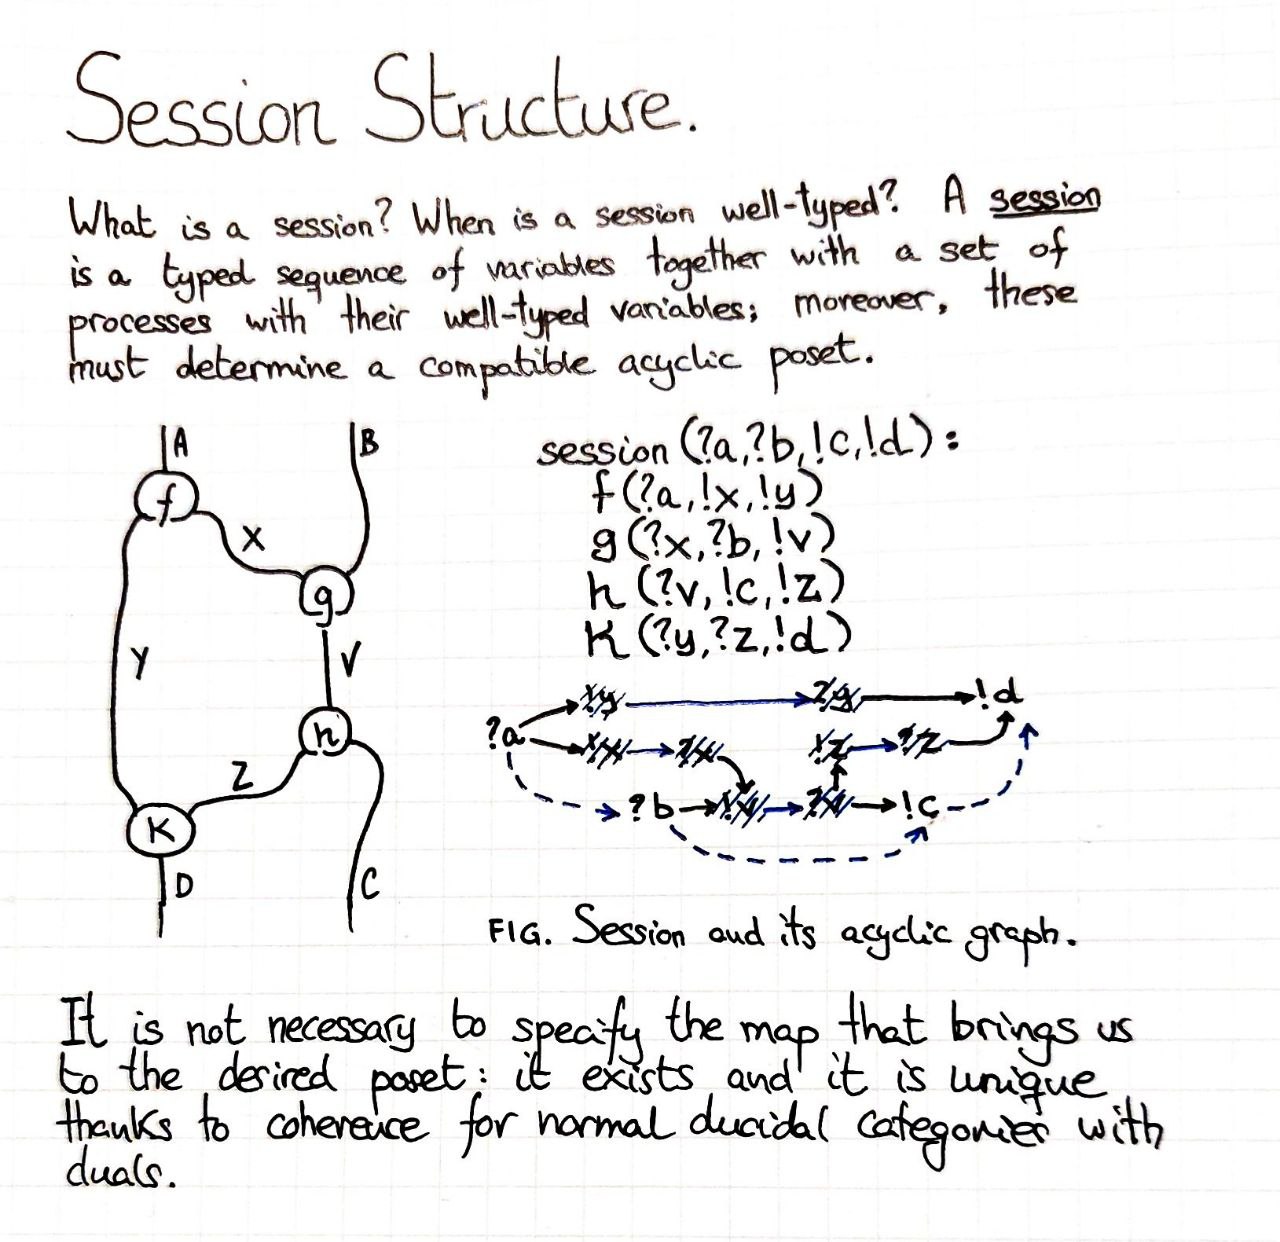 Session Structure.
What is a session? When is a session well-typed? A session
is a typed sequence of variables together with a set of
processes with their well-typed variables; moreover, these
must determine a compatible acyclic poset.
A
B
f
X
g
Y
V
h
Z
K
D
C
session (?a,?b,!c,!d):
f(?a,!x,!y)
g(?x,?b,!v)
h(?v,!c,!z)
K(?y,?z,!d)
!y ?y !d
?a !x ?x !z ?z
?b !v ?v !c
FIG. Session and its acyclic graph.
It is not necessary to specify the map that brings us
to the desired poset: it exists and it is unique
thanks to coherence for normal ducidal categories with
duals.